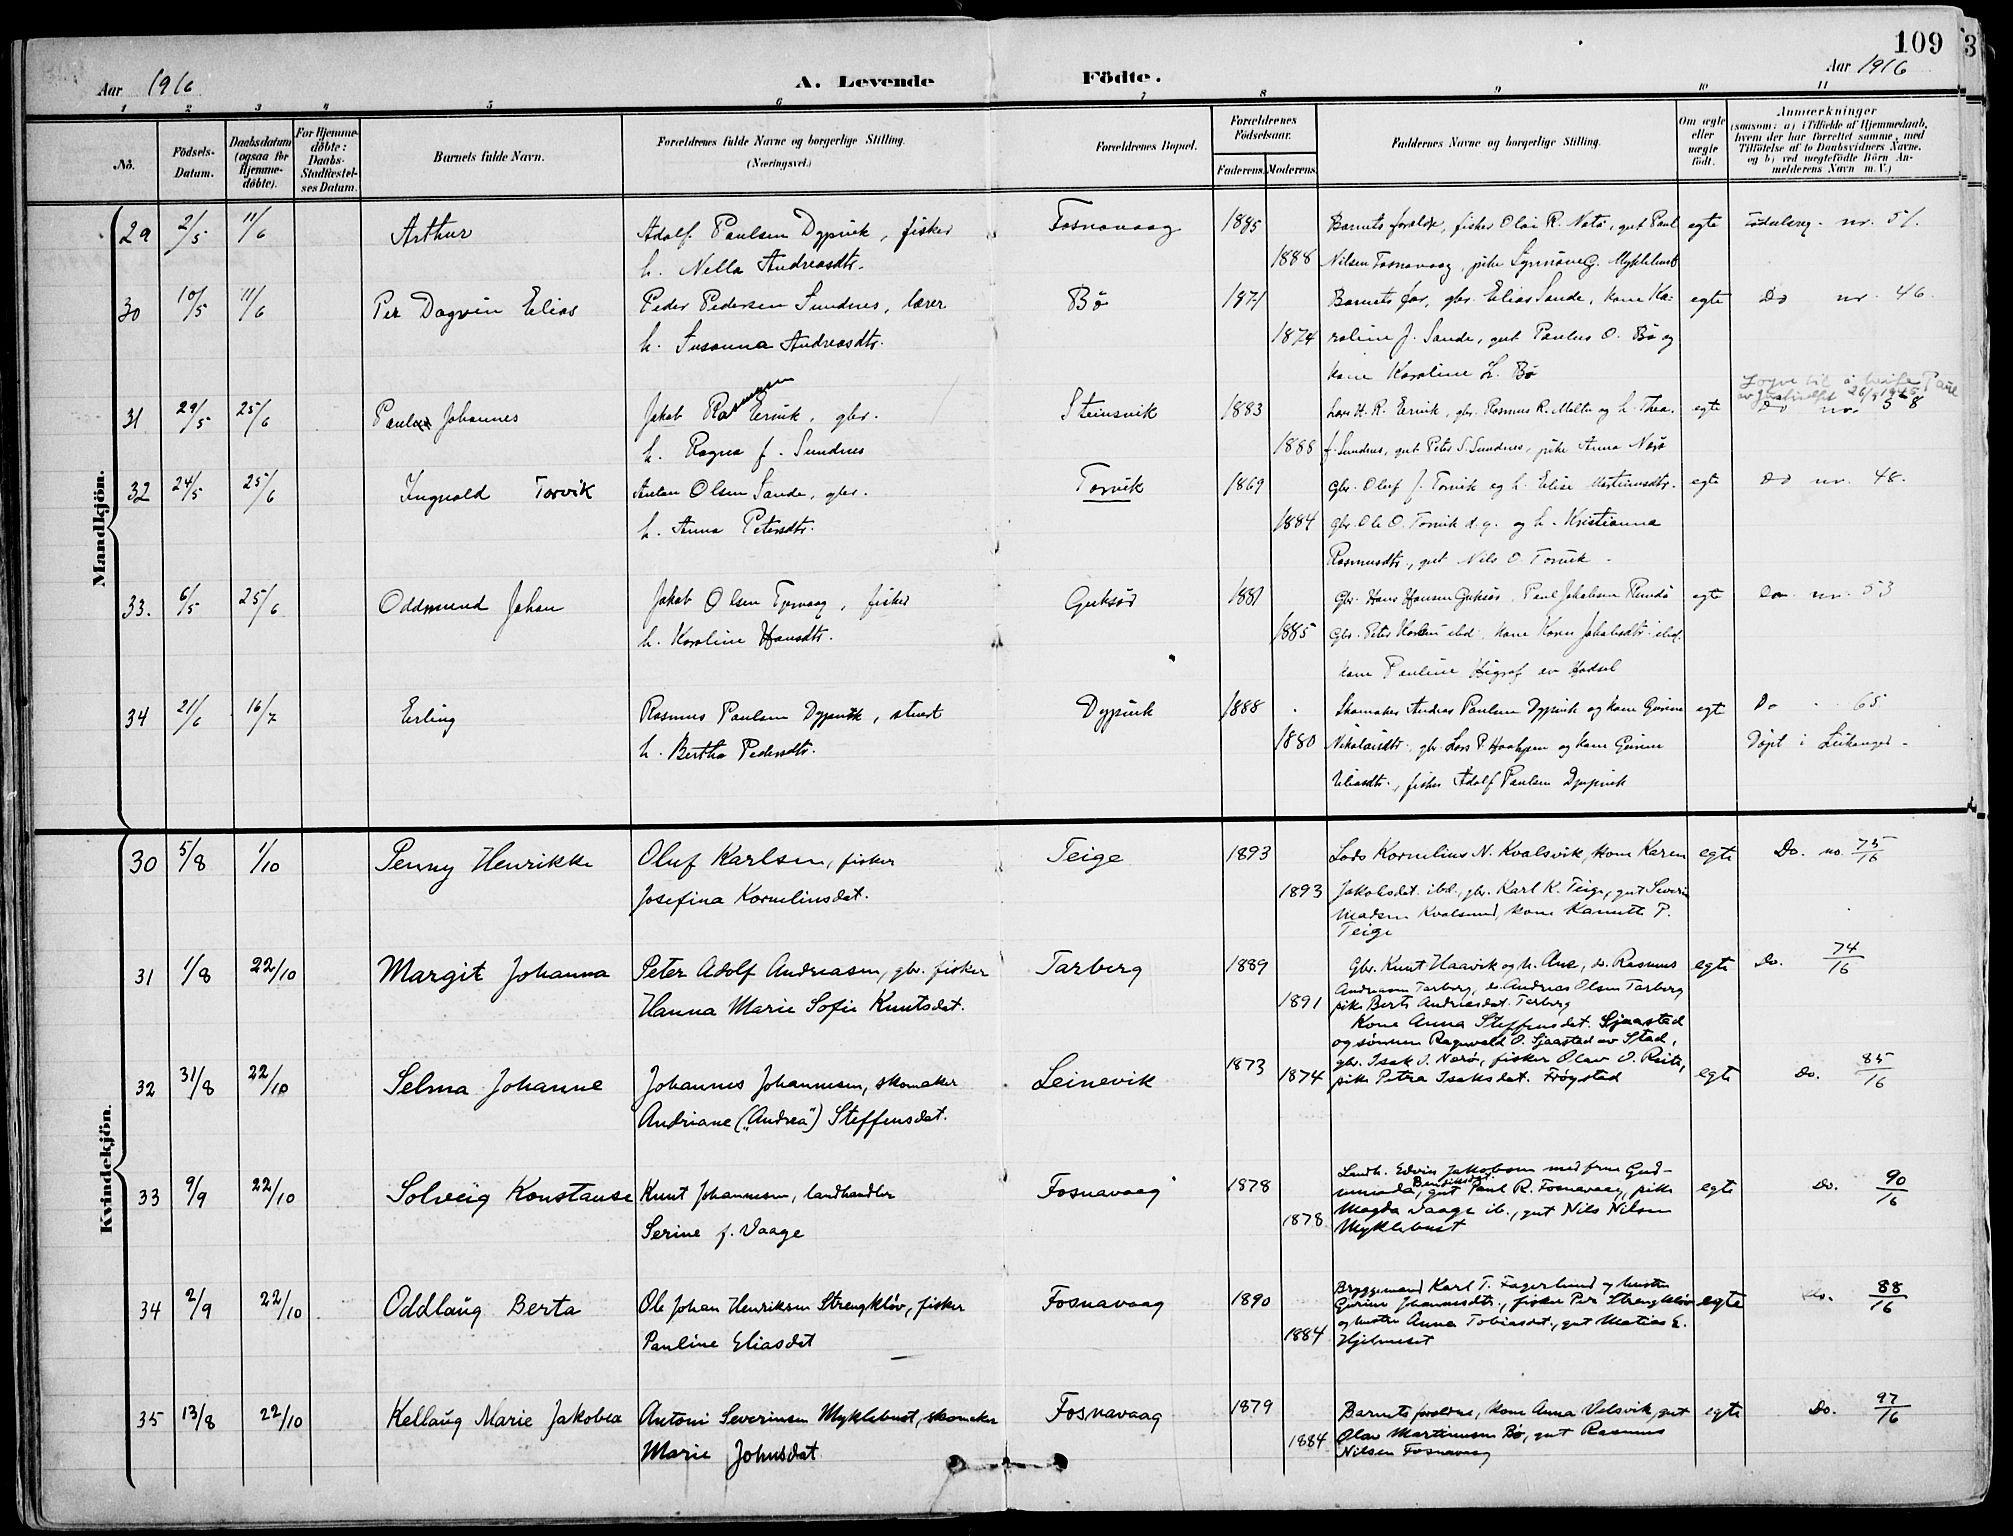 109
3
Aar 1916
A. Levende Födte.
Aar 1916
1 2 3 4 5 6 7 8 9 10 11
No.
Födsels-Datum.
Daabsdatum (ogsaa for Hjemme-döbte).
For Hjemme-döbte: Daabs-Stadfæstel-ses Datum.
Barnets fulde Navn.
Forældrenes fulde Navne og borgerlige Stilling. (Næringsvei.)
Forældrenes Bopæl.
Forældrenes Födselsaar.
Faderens. Moderens.
Faddernes Navne og borgerlige Stilling.
Om ægte eller uægte födt.
Anmærkninger
(saasom: a) i Tilfælde af Hjemmedaab, hvem der har forrettet samme, med Tilföielse af to Daabsvidners Navne, og b) ved uægtefödte Börn An-melderens Navn m. V.)
Mandkjön.
29 2/5 11/6 Arthur Adolf Paulsen Dypvik, fisker Fosnavaag 1885 Barnets foreldr, fisker Olai R. Nētø, gut Paul egte Fødselsreg. nr. 51.
h. Nella Andreasdtr. 1888 Nilsen Fosnavaag, pike Synnøve G. Myklebust
30 10/5 11/6 Per Dagvin Elias Peder Pedersen Sundnes, lærer Bø 1871 Barnets far, gbr. Elias Sande, kone Ka- egte Do nr. 46.
h. Susanna Andreasdtr. 1874 roline J. Sande, gut Paulus O. Bø og
kone Karoline L. Bø
31 29/5 25/6 Johannes Jakob Rasmussen Ervik, gbr. Steinsvik 1883 Lars H. R. Ervik, gbr. Rasmus R. Molta og h. Thea egte Do nr. 58
h. Ragna f. Sundnes 1888 f. Sundnes, gut Peter S. Sundnes, pike Anna Nærø
32 24/5 25/6 Ingvald Torvik Anton Olsen Sande, gbr. Torvik 1869 Gbr. Oluf J. Torvik og h. Elise Martinusdtr. egte Do nr. 48.
h. Anna Petersdtr. 1884 gbr. Ole O. Torvik d.y. og h. Kristianna
Rasmusdtr., gut Nils O Torvik
33. 6/5 25/6 Oddmund Johan Jakob Olsen Tjervaag, fisker Gurksør 1881 Gbr. Hans Hansen Gurksør Paul Jakobsen Rundø egte Do nr. 53
h. Karoline Hansdtr. 1885 gbr. Peter ibid. kone Karen Jakobsdtr. ibid.
kone Pauline av Hadsel
34 21/6 16/7 Erling Rasmus Paulsen Dypvik, stuert Dypvik 1888 Skomaker Andreas Paulsen Dypvik og kone Gurine egte Do 65
h. Bertha Pedersdtr. 1880 Nikolaisdtr., gbr. Lars P. og kone Gurine Døpt i Leikanger
Eliasdtr., fisker Adolf Paulsen Dypvik
Kvindekjön.
30 5/8 1/10 Penny Henrikke Oluf Karlsen, fisker Teige 1893 Lods Kornelius N. Kvalsvik, kone Karen egte Do. no. 75/16
Josefina Korneliusdat. 1893 Jakobsdat. ibd., gbr. Karl K. Teige, gut Severin
Madsen Kvalsund, kone Kanutte P.
Teige
31 1/8 22/10 Margit Johanna Peter Adolf Andreasen, gbr. fisker Tarberg 1889 Gbr. Knut Haavik og h. Ane, do. Rasmus egte Do. 74/16
Hanna Marie Sofie Knutsdat. 1891 Andreasen Tarberg, do. Andreas Olsen Tarberg
pike Berte Andreasdat. Tarberg
Kone Anna Steffensdat. Sjaastad
og sønnen Ragnvald O. Sjaastad av Stad,
gbr. Isak J. Nærø, fisker Olav O. Reite,
32 31/8 22/10 Selma Johanne Johannes Johannesen, skomaker Leinevik 1873 1874 pike Petra Isaksdat. Frøystad egte do. 85/16
Andriane („Andrea") Steffensdat.
33 9/9 22/10 Solveig Konstanse Knut Johannesen, landhandler Fosnavaag 1878 Landh. Edvin Jakobsen med frue Gud- egte Do. 90/16
Serine f. Vaage 1878 munda Bendiksdat., gut Paul R. Fosnavaag, pike
Magda Vaage ib., gut Nils Nilsen
Myklebust
34 2/9 22/10 Oddlaug Berta Ole Johan Henriksen Strengkløv, fisker Fosnavaag 1890 Bryggemand Karl T. Fagerlund og hustru egte do. 88/16
Pauline Eliasdat 1884 Gurine Johannesdtr., fisker Per Strengkløv
og hustru Anna Tobiasdat., gut Matias E.
Hjelmeset
35 13/8 22/10 Kellaug Marie Jakobea Antoni Severinsen Myklebust, skomaker Fosnavaag 1879 Barnets foreldre, kone Anna Velsvik, gut egte Do. 97/16
Marie Johnsdat 1884 Olav Martinusen Bø, gut Rasmus
Nilsen Fosnavaag